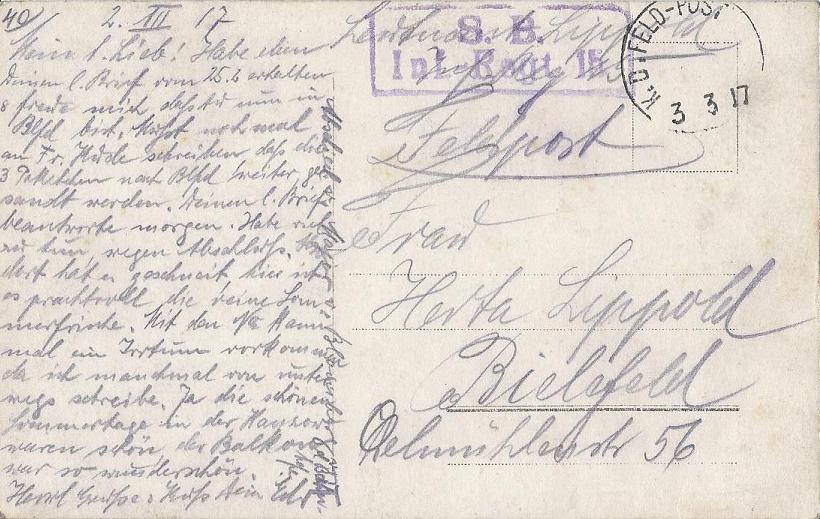 40
2. III 17
Mein l. Lieb! Habe eben
Deinen l. Brief vom 25.2 erhalten
& freue mich daß Du nun in
Blfd bist. Mußt noch mal
an Fr. schreiben daß die
3 Paketchen nach Blfd weiter ge
sandt werden. Deinen l. Brief
beantworte morgen. Habe viel
zu tun wegen Abschluß.
dort hat es geschneit hier ist
es prachtvoll die reine Som
merfrische. Mit den No kann
mal ein Irrtum vorkommen
da ich manchmal von unter
wegs schreibe. Ja die schönen
Sommertage in der
waren schön, der Balkon
war so wunderschön.
Herzl Grüße & Kuß Dein
S. B.
Inf. Regt. 15
K. D. FELD-POST
3 3 17
Lippold
Feldpost
Frau
Herta Lippold
Bielefeld
Oelmühlenstr 56